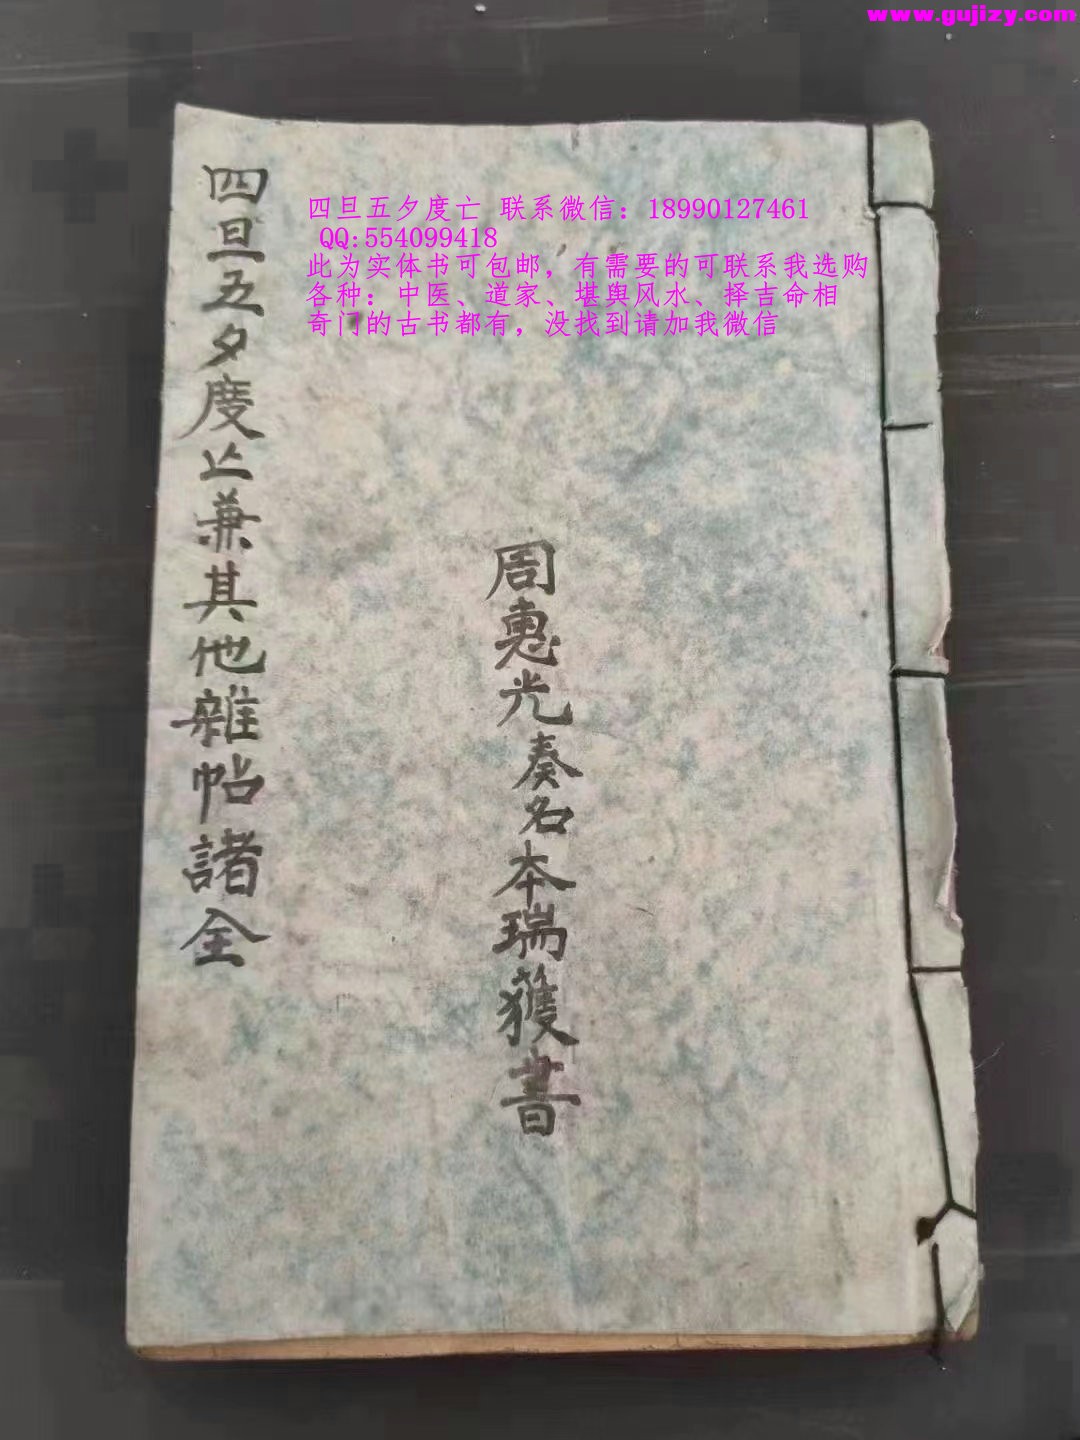 www.gujizy.com
四旦五夕度亡 联系微信：18990127461
QQ:554099418
此为实体书可包邮，有需要的可联系我选购
各种：中医、道家、堪舆风水、择吉命相
奇门的古书都有，没找到请加我微信
四旦五夕度亡兼其他雜帖諸全
周惠光奏名本瑞獲書